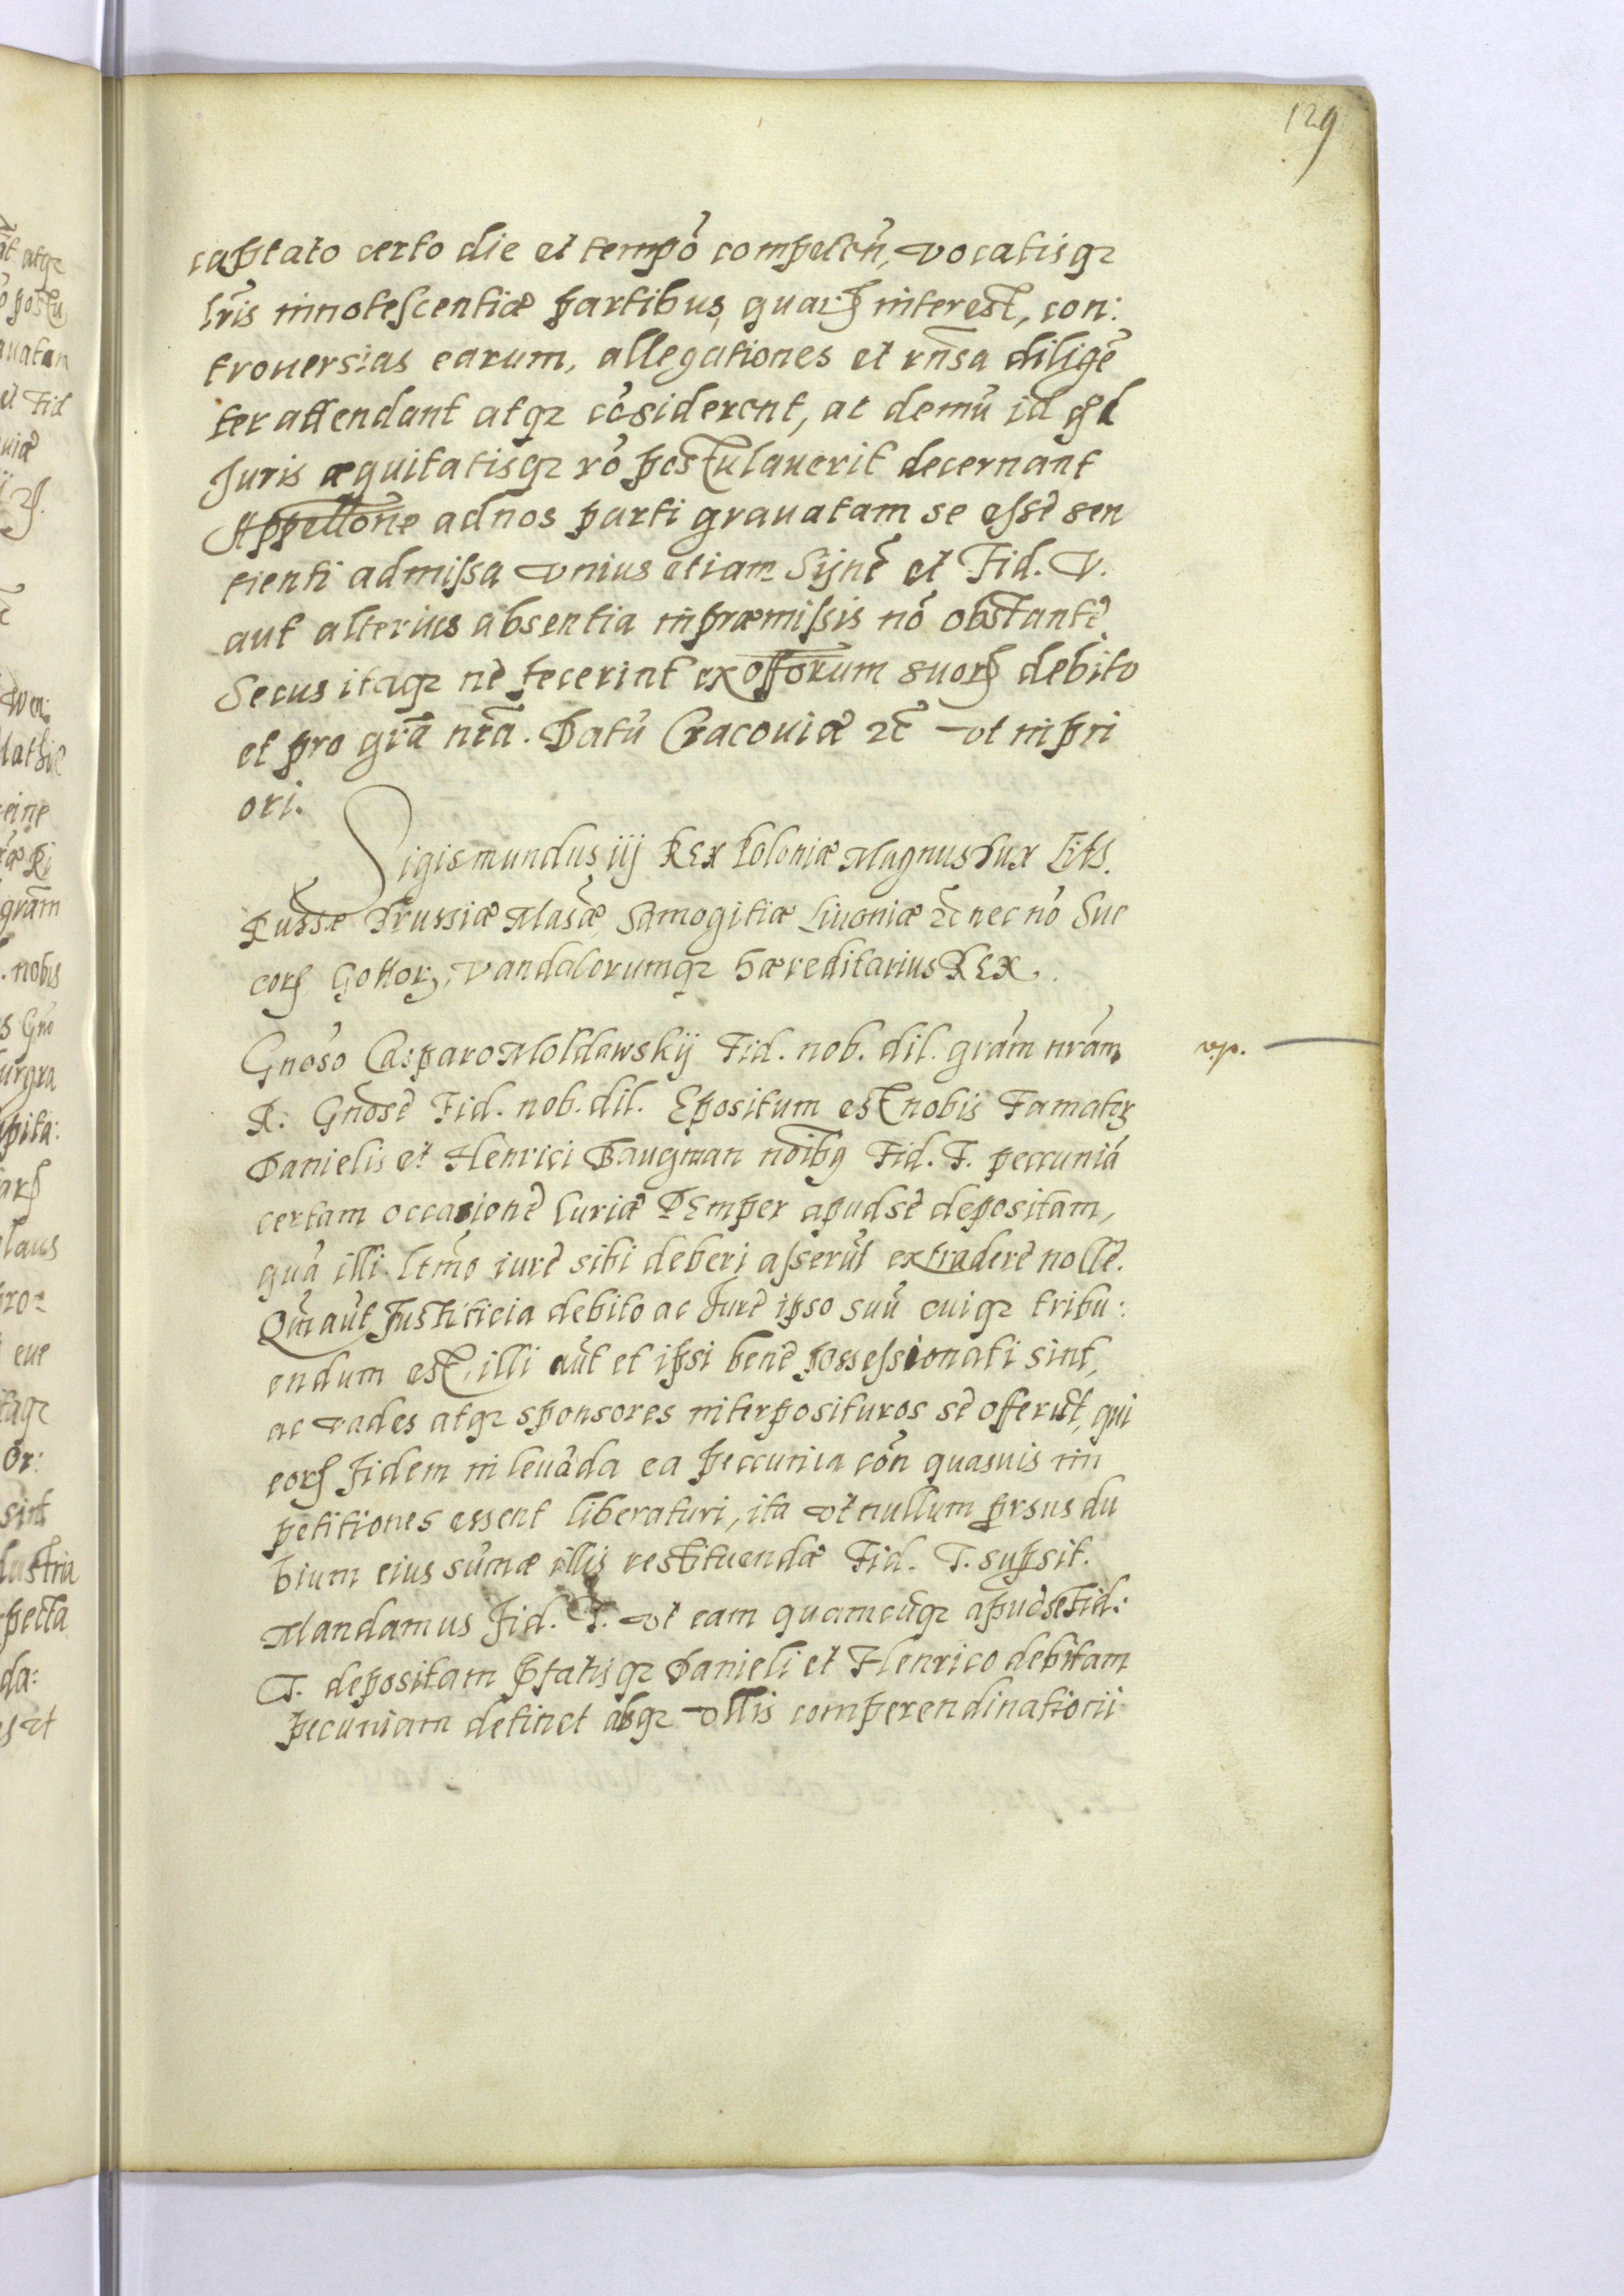 129
captato certo die et tempõ competeñ, vocatisq₃
lrĩs innotescentiæ partibus, quarꝝ interest, con:
trouersias earum, allegationes et rñsa diligẽ
ter attendant atq₃ cõsiderent, ac demũ id qd
Juris æquitatisq₃ rõ postulauerit decernant
Appellõne ad nos parti grauatam se esse sen
tienti admissa vnius etiam Sijnĕ et Fid. V.
aut alterius absentia in præmissis nõ obstante
Secus itaq₃ ne fecerint ex offõrum suorꝝ debito
et pro grã nrã. Datũ Cracouiæ ꝛc̃ vt in pri
ori.
Sigismundus iij REX Poloniæ Magnus Dux Lits.
Russæ Prussiæ Masõæ, Samogitiæ Liuoniæ ꝛc̃ nec nõ Sue
corꝝ Gottorꝝ, Vandalorumq₃ hæreditarius REX.
Gnõso Casparo Moldawskij Fid. nob. dil. grãm nrãm
R: Gnõse Fid. nob. dil. Expositum est nobis Famatꝝ
Danielis et Henrici Baugman nõibꝰ Fid. T. peccuniã
certam occasione Curiæ DEmper apud se depositam,
quã illi ltmõ iure sibi deberi asserũt extradere nolle.
Qm̃ aũt Justiticia debito ac Jure ipso suũ cuiq₃ tribu:
endum est, illi aũt et ipsi bene possessionati sint,
ac vades atq₃ sponsores interposituros se offerũt, qui
eorꝝ fidem in leuãda ea peccunia cõn quasuis im
petitiones essent liberaturi, ita vt nullum ꝓrsus du
bium eius sũmæ illis restituendæ Fid. T. supsit.
Mandamus Fid. T. vt eam quamcũq₃ apud se Fid:
T. depositam Pfatisq₃ Danieli et Henrico debitam
pecuniam detinet absq₃ vllis comperendinationi